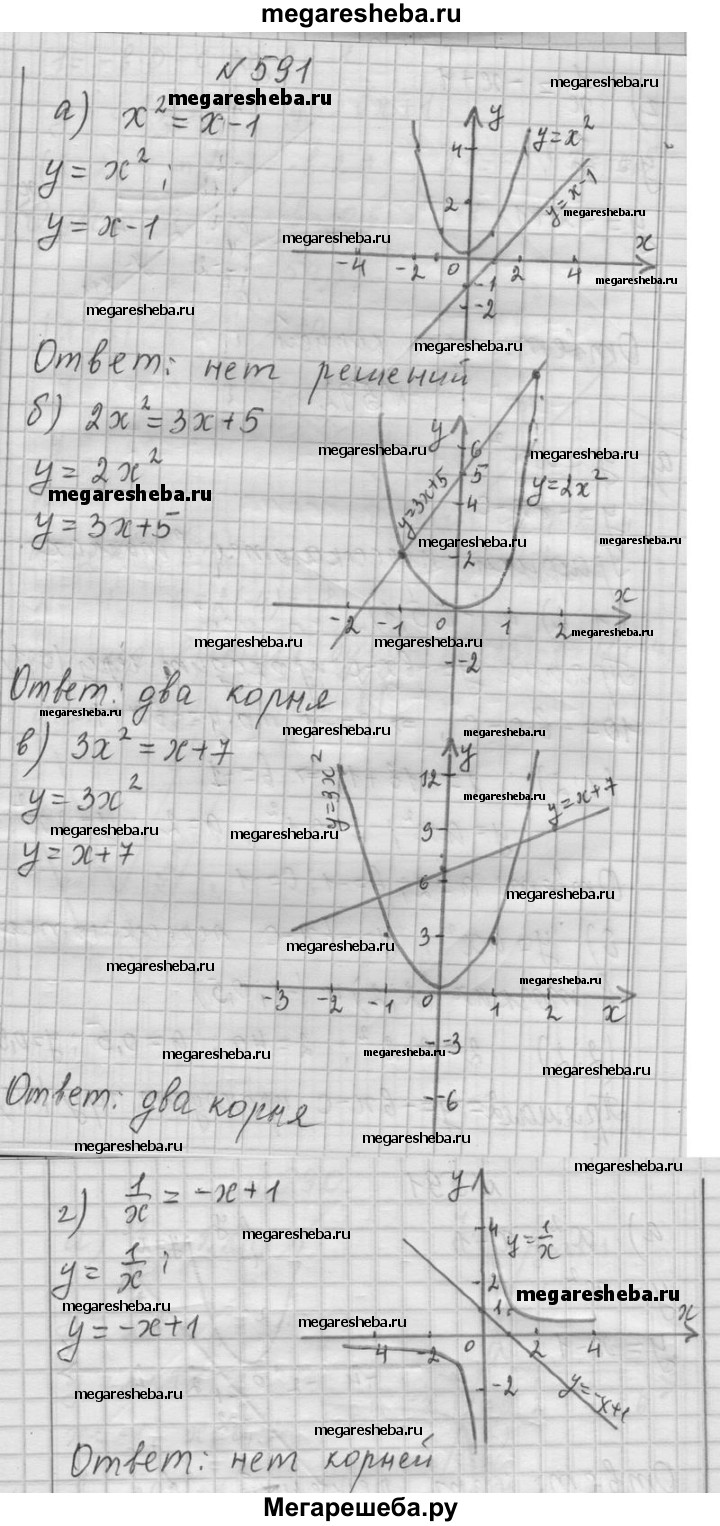 megaresheba.ru
N 591
megaresheba.ru
а) x² = x-1
y = x²;
y = x-1
y
4
2
y=x²
y=x-1
x
-4 -2 0 2 4
-1
-2
megaresheba.ru
megaresheba.ru
megaresheba.ru
megaresheba.ru
megaresheba.ru
megaresheba.ru
Ответ: нет решений
б) 2x² = 3x+5
y = 2x²
megaresheba.ru
y = 3x+5
y
6
5
4
2
y=3x+5
y=2x²
x
-2 -1 0 1 2
-2
megaresheba.ru
megaresheba.ru
megaresheba.ru
megaresheba.ru
megaresheba.ru
megaresheba.ru
Ответ: два корня
megaresheba.ru
megaresheba.ru
megaresheba.ru
в) 3x² = x+7
y = 3x²
megaresheba.ru
y = x+7
y=3x²
y
12
9
6
3
y=x+7
-3 -2 -1 0 1 2 x
-3
-6
megaresheba.ru
megaresheba.ru
megaresheba.ru
megaresheba.ru
megaresheba.ru
megaresheba.ru
megaresheba.ru
megaresheba.ru
megaresheba.ru
Ответ: два корня
megaresheba.ru
megaresheba.ru
megaresheba.ru
megaresheba.ru
г) 1/x = -x+1
y = 1/x;
megaresheba.ru
y = -x+1
y
4
2
1
y=1/x
megaresheba.ru
x
-4 -2 0 2 4
-2
y=-x+1
megaresheba.ru
megaresheba.ru
megaresheba.ru
megaresheba.ru
Ответ: нет корней
Мегарешеба.ру